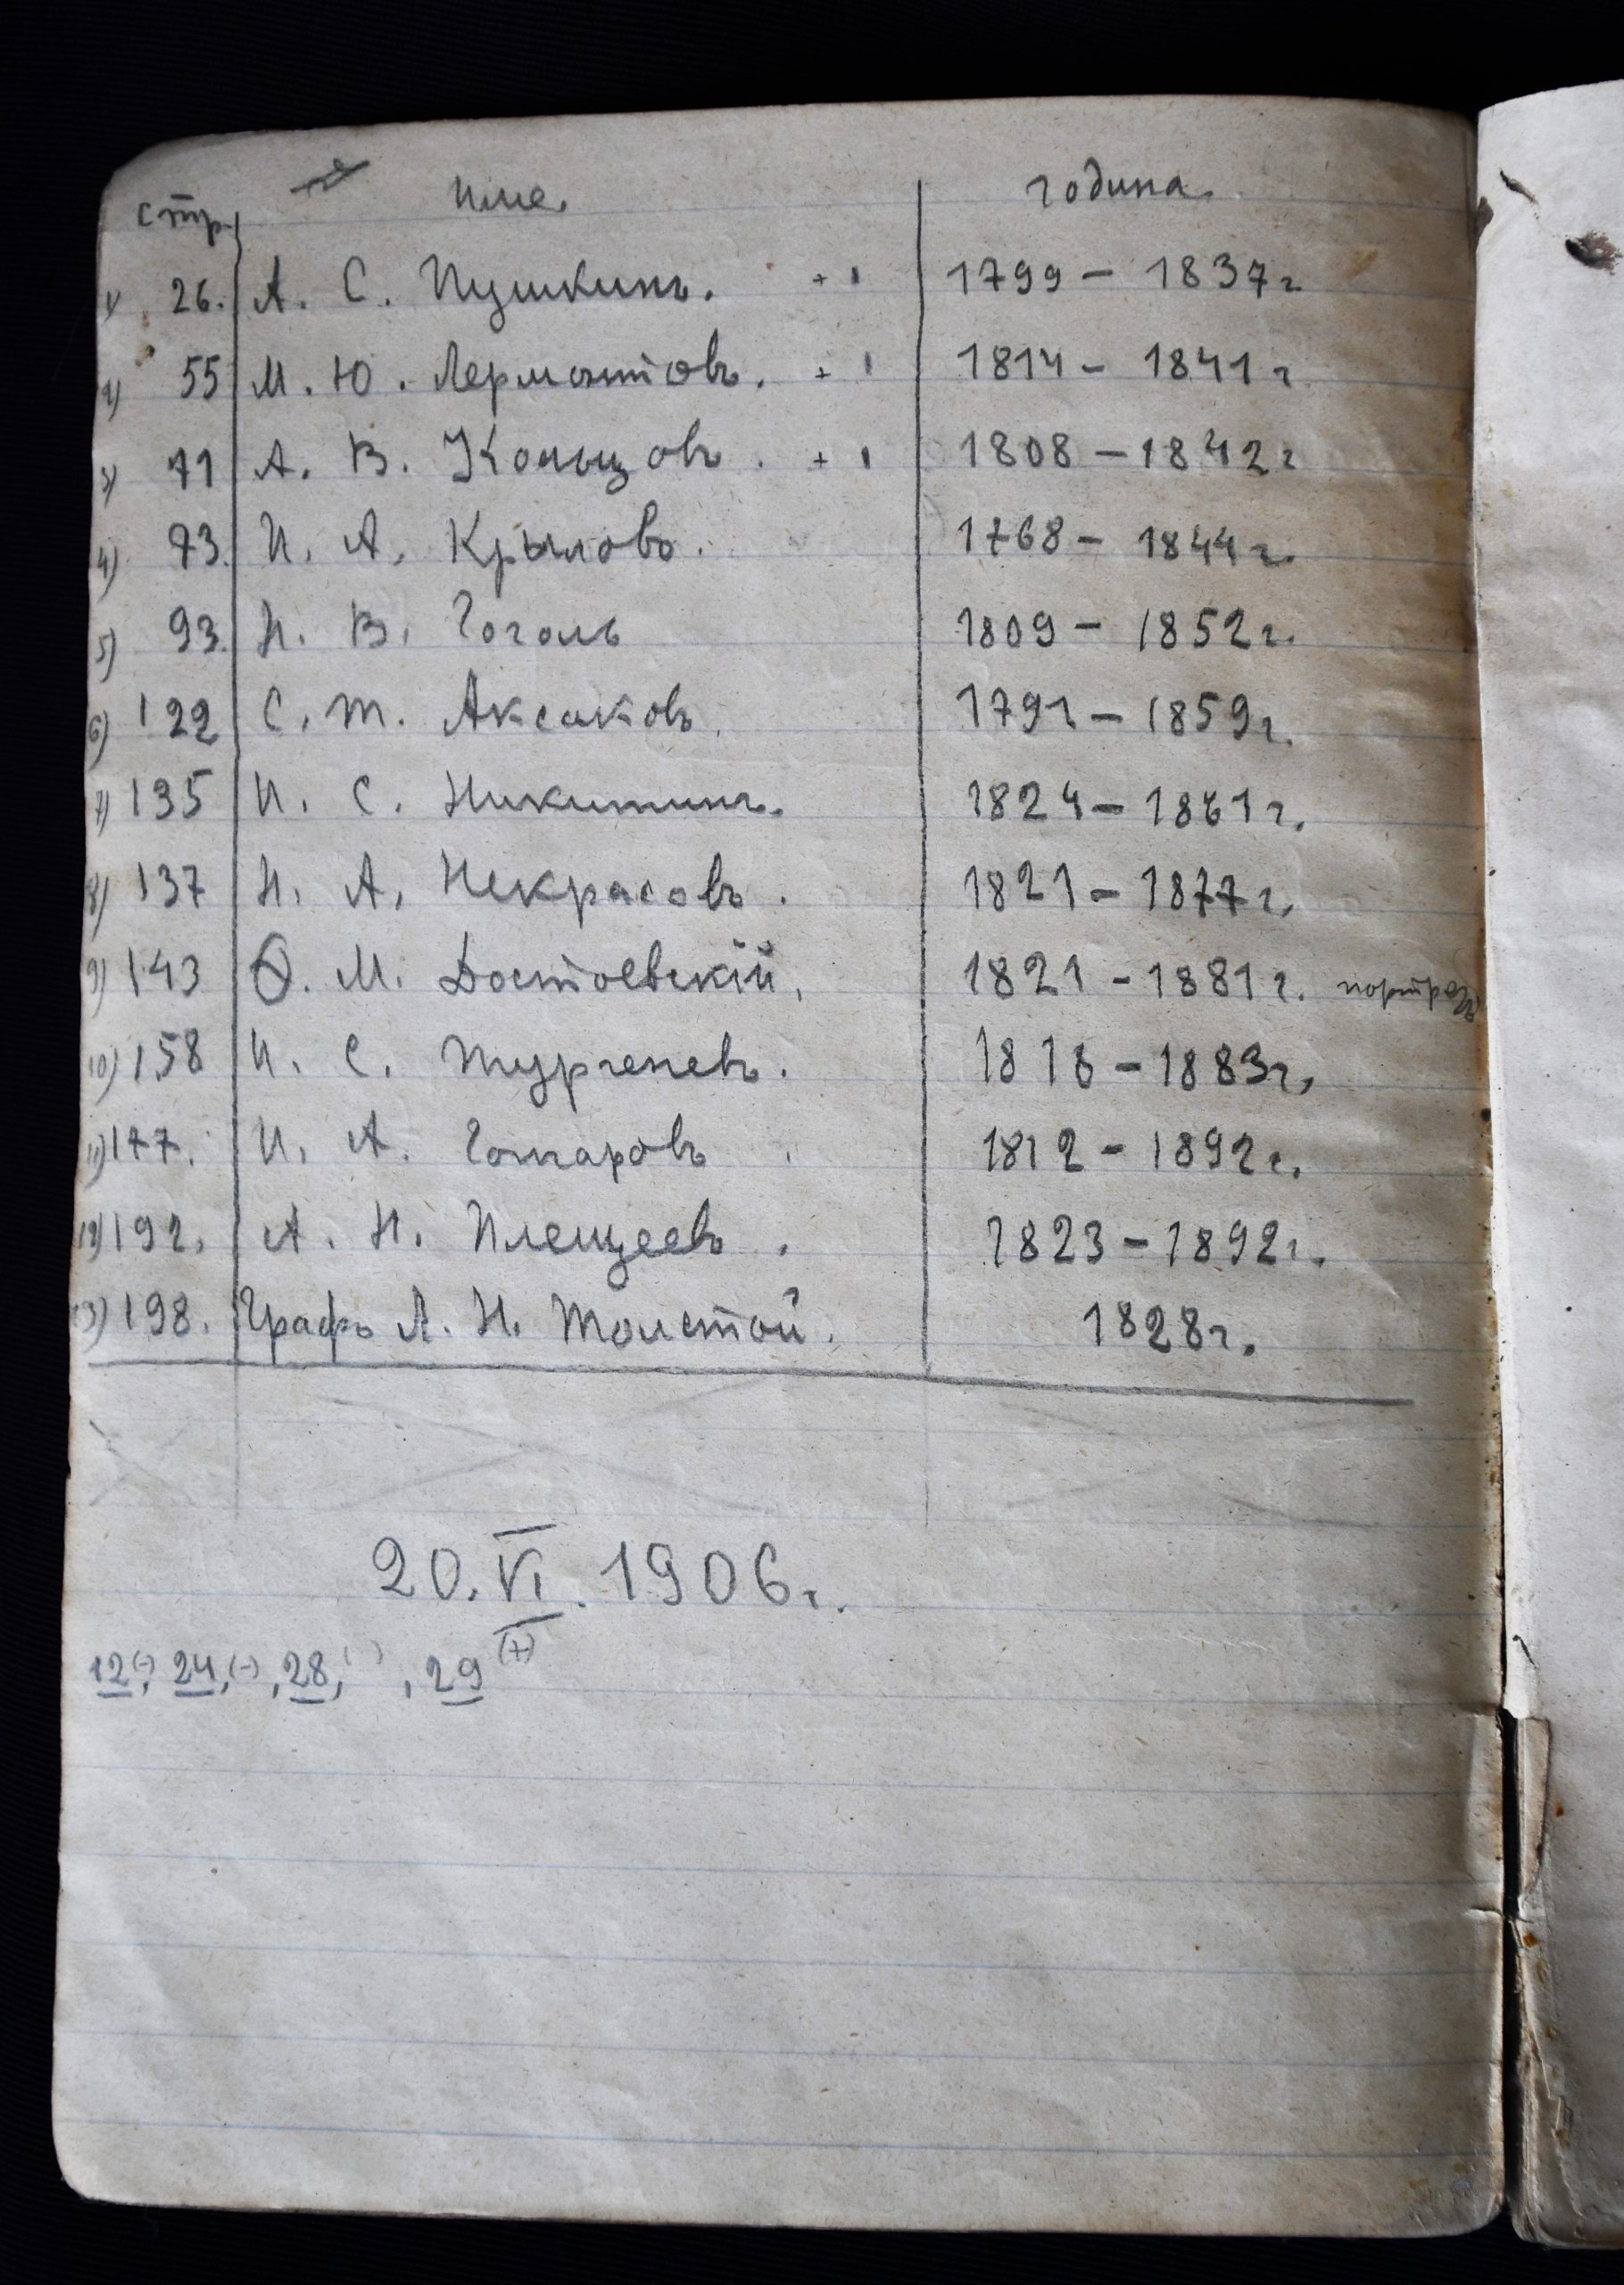 стр. име. година.
1) 26. А. С. Пушкинъ. + 1 1799 – 1837 г.
2) 55 М. Ю. Лермонтовъ. + 1 1814 – 1841 г
3) 71 А. В. Кольцовъ. + 1 1808 – 1842 г
4) 73. И. А. Крыловъ. 1768 – 1844 г.
5) 93. Н. В. Гоголь 1809 – 1852 г.
6) 122 С. Т. Аксаковъ. 1791 – 1859 г.
7) 135 И. С. Никитинъ. 1824 – 1861 г.
8) 137 Н. А. Некрасовъ. 1821 – 1877 г.
9) 143 Ѳ. М. Достоевскій. 1821 – 1881 г.
10) 158 И. С. Тургеневъ. 1818 – 1883 г.
11) 177. И. А. Гончаровъ. 1812 – 1892 г.
12) 192. А. Н. Плещеевъ. 1823 – 1892 г.
13) 198. Графъ Л. Н. Толстой. 1828 г.
20. VI. 1906 г.
12(-), 24,(-), 28,( ), 29 (+)